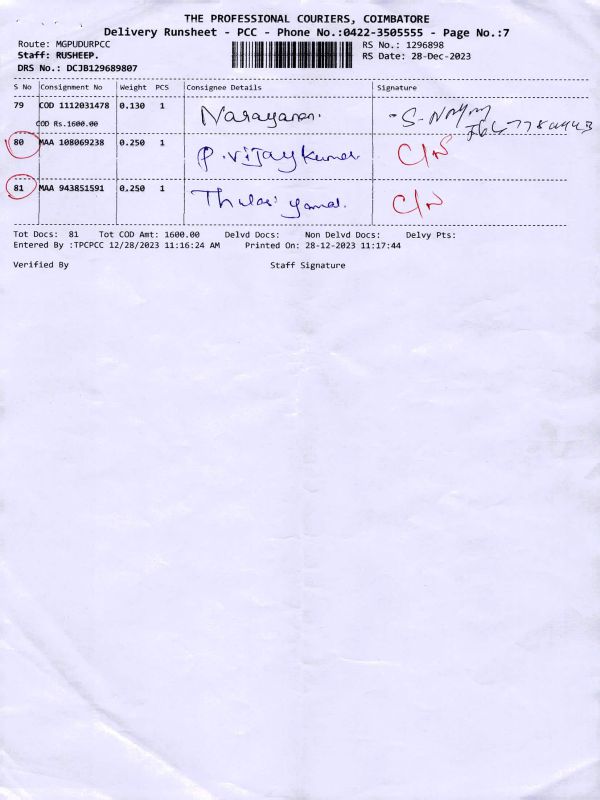 THE PROFESSIONAL COURIERS, COIMBATORE
Delivery Runsheet - PCC - Phone No.:0422-3505555 - Page No.:7
Route: MGPUDURPCC RS No.: 1296898
Staff: RUSHEEP. RS Date: 28-Dec-2023
DRS No.: DCJB129689807
S No Consignment No Weight PCS Consignee Details Signature
79 COD 1112031478 0.130 1 Narayanan.
COD Rs.1600.00
80 MAA 108069238 0.250 1 P. Vijaykumar C/N
81 MAA 943851591 0,250 1 C/N
Tot Docs: 81 Tot COD Amt: 1600.00 Delvd Docs: Non Delvd Docs: Delvy Pts:
Entered By :TPCPCC 12/28/2023 11:16:24 AM Printed On: 28-12-2023 11:17:44
Verified By Staff Signature